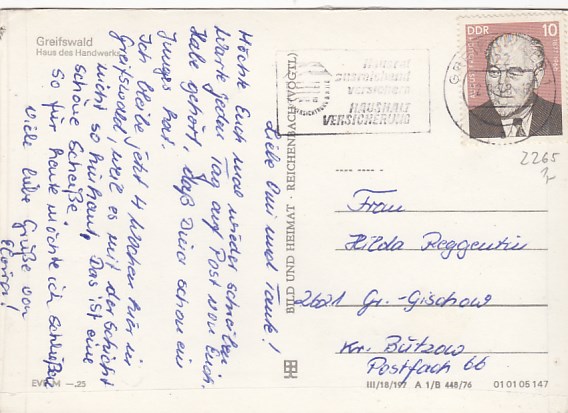 Greifswald
Haus des Handwerks
Liebe Omi und Tante!
Möchte Euch mal wieder schreiben.
Warte jeden Tag auf Post von Euch.
Habe gehört, daß Dina schon ein
Junges hat.
Ich bleibe jetzt 4 Wochen hier in
Greifswald, weil es mit der Schicht
nicht so hinhaut. Das ist eine
schöne Scheiße.
So für heute möchte ich schließen
Viele liebe Grüße von
BILD UND HEIMAT · REICHENBACH (VOGTL)
ausreichend
versichern
HAUSHALT
VERSICHERUNG
DDR 10
2265
Frau
Hilda Reggentin
2621 Gr.-Gischow
Kr. Bützow
Postfach 66
EVP M —.25
III/18/197 A 1/B 448/76 01 01 05 147